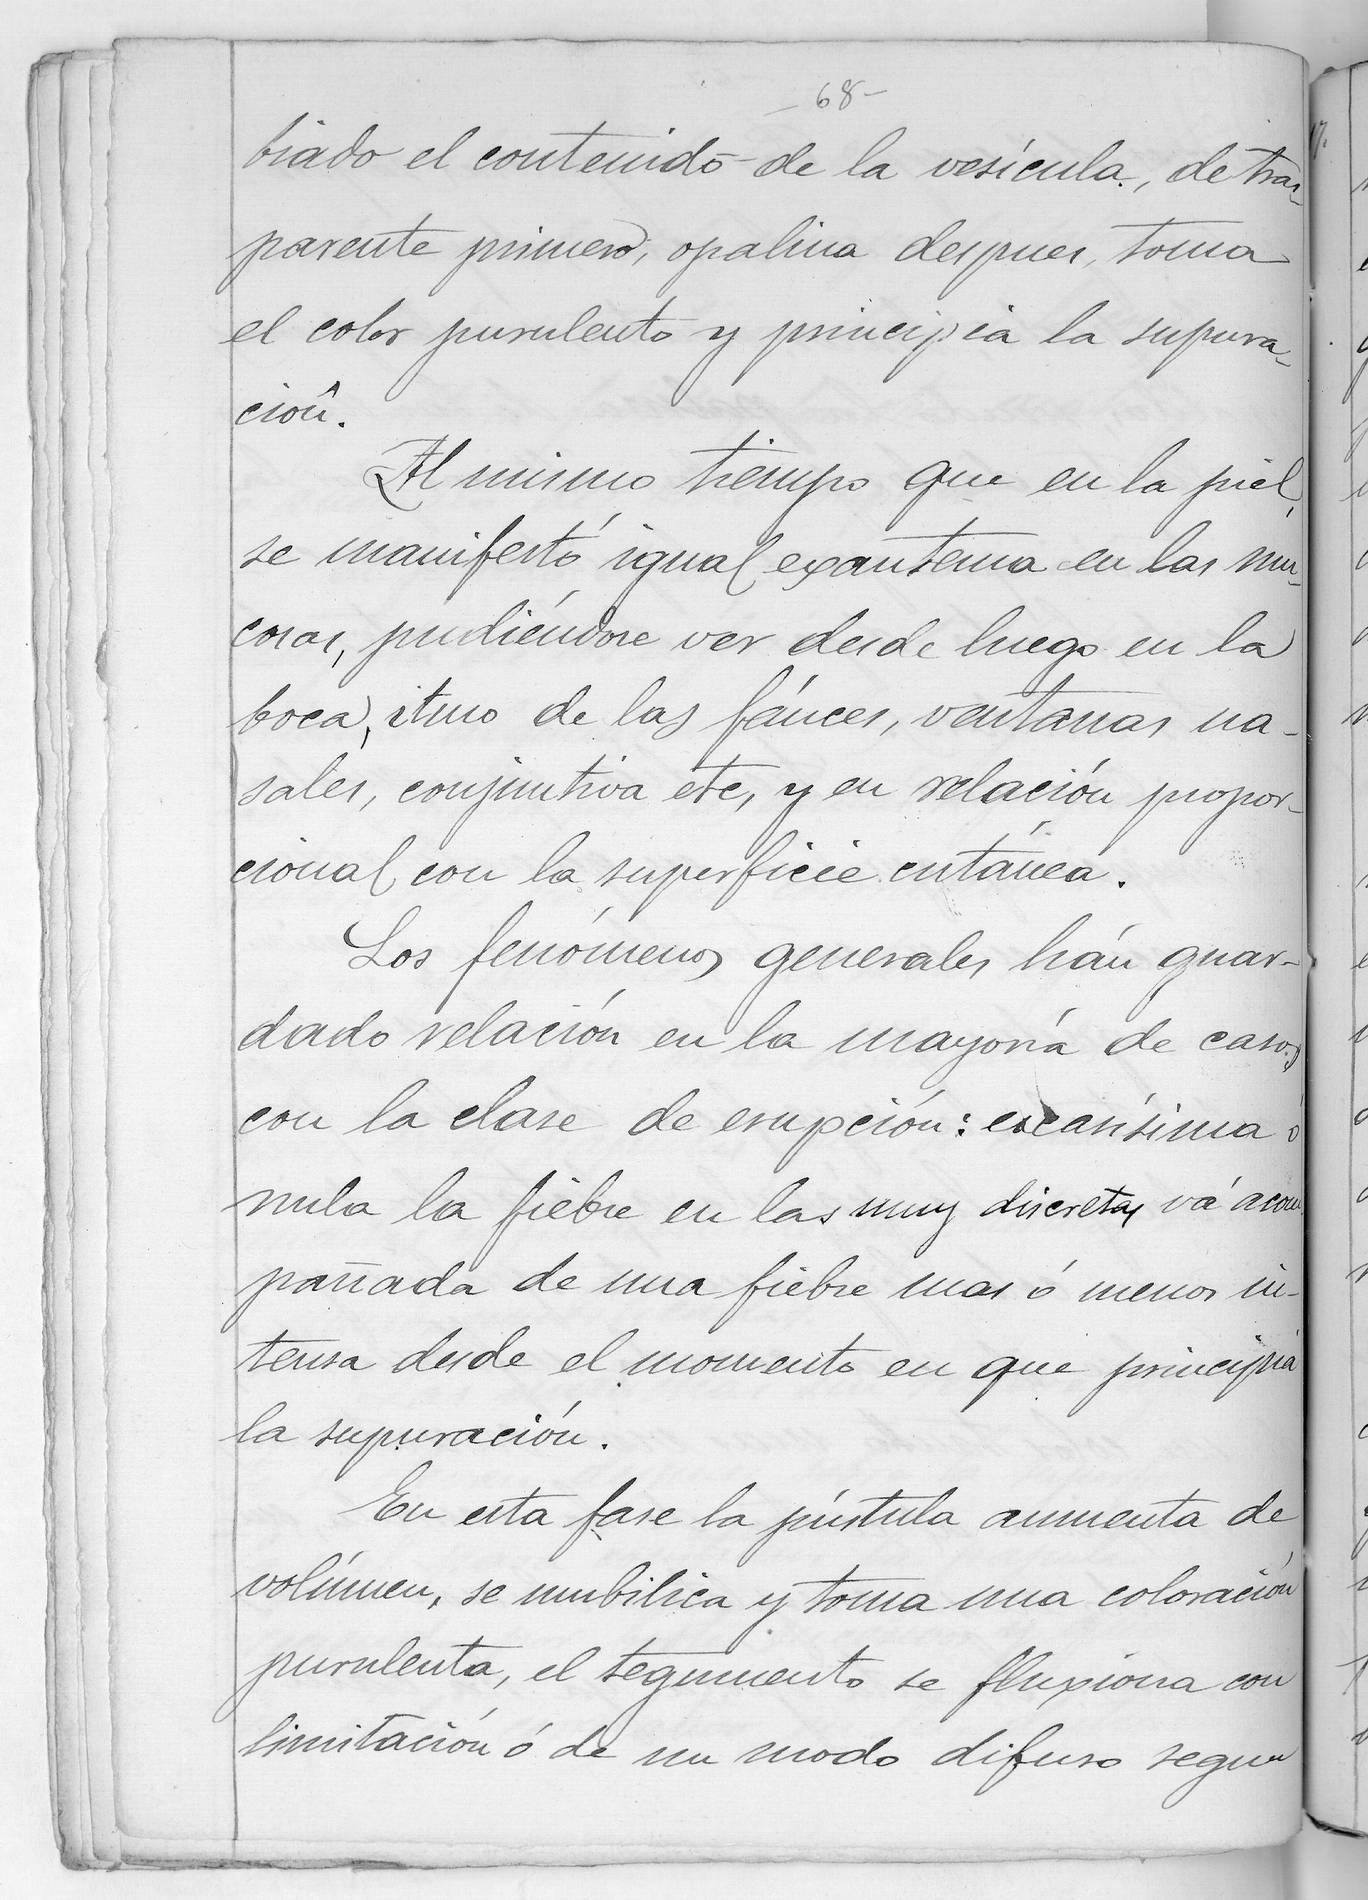 -68-
biado el contenido de la vesícula, de tras-
parente primero, opalina despues, toma
el color purulento y principia la supura-
ción.
Al mismo tiempo que en la piel,
se manifestó igual exantema en las mu-
cosas, pudiéndose ver desde luego en la
boca, itmo de las fáuces, ventanas na-
sales, conjuntiva etc, y en relación propor-
cional con la superficie cutánea.
Los fenómenos generales hán guar-
dado relación en la mayoría de casos
con la clase de erupción: escasísima ó
nula la fiebre en las muy discretas vá acom
pañada de una fiebre mas ó menos in-
tensa desde el momento en que principia
la supuración.
En esta fase la pústula aumenta de
volúmen, se umbilica y toma una coloración
purulenta, el tegumento se fluxiona con
limitación ó de un modo difuso segun